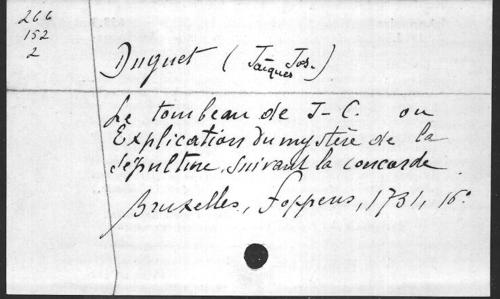 266
152
2
Duguet (Jacques Jos.)
Le tombeau de J-C. ou
Explication du mystère de la
sépulture, suivant la concorde
Bruxelles, Foppens, 1731, 16º